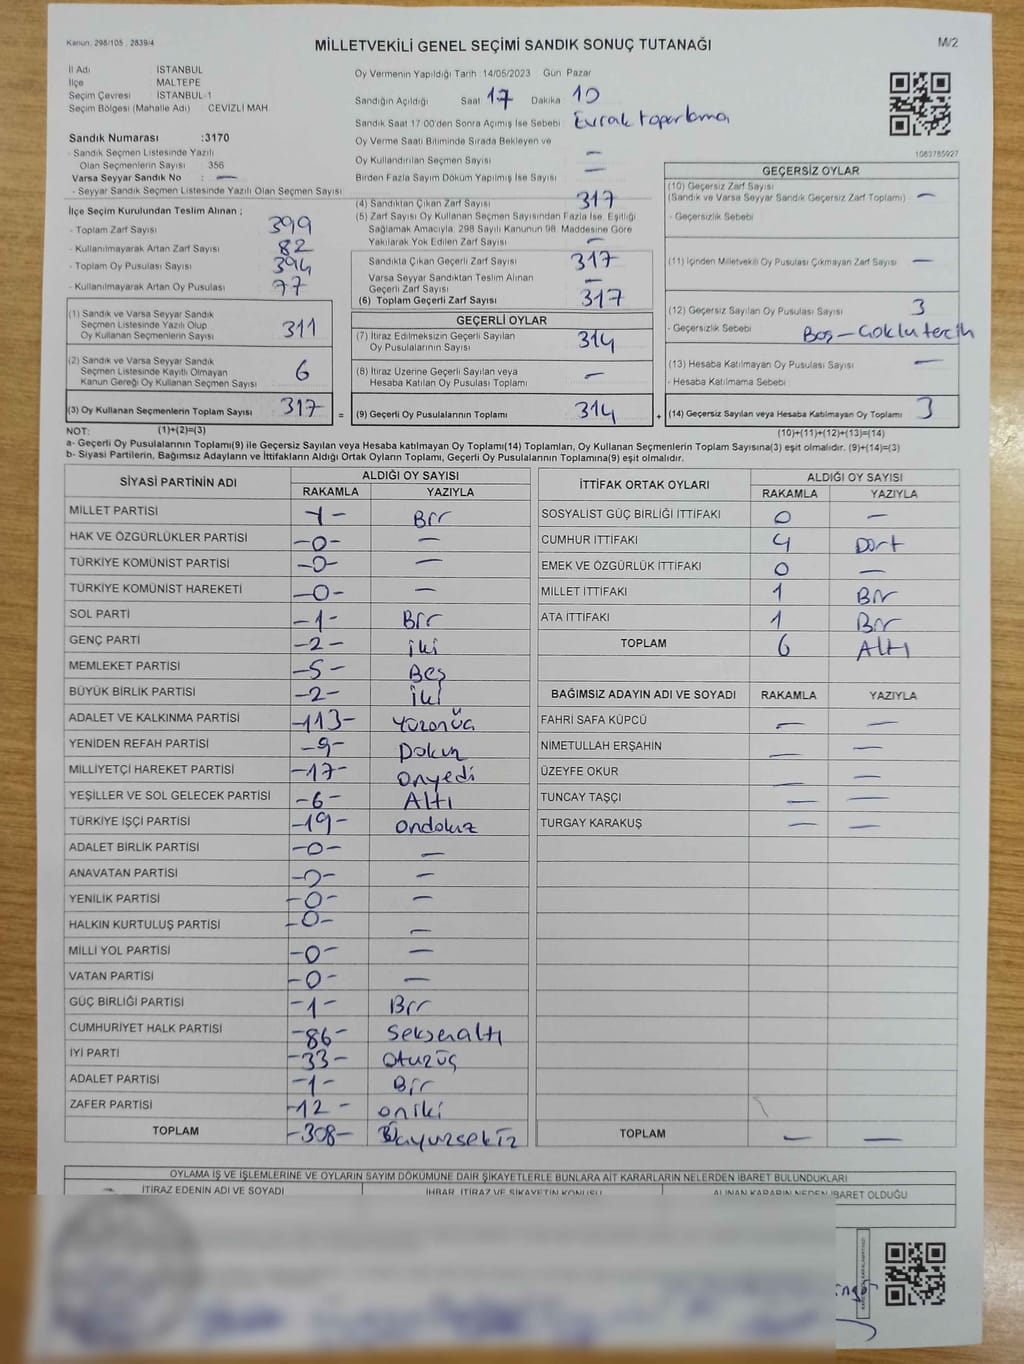 Kanun: 298/105 , 2839/4
MİLLETVEKİLİ GENEL SEÇİMİ SANDIK SONUÇ TUTANAĞI
M/2
İl Adı : İSTANBUL
İlçe : MALTEPE
Seçim Çevresi : İSTANBUL-1
Seçim Bölgesi (Mahalle Adı) : CEVİZLİ MAH
Sandık Numarası :3170
- Sandık Seçmen Listesinde Yazılı
Olan Seçmenlerin Sayısı : 356
Varsa Seyyar Sandık No : —
- Seyyar Sandık Seçmen Listesinde Yazılı Olan Seçmen Sayısı
Oy Vermenin Yapıldığı Tarih :14/05/2023 Gün Pazar
Sandığın Açıldığı Saat 17 Dakika 10
Sandık Saat 17:00'den Sonra Açılmış İse Sebebi : Evrak toparlama
Oy Verme Saati Bitiminde Sırada Bekleyen ve
Oy Kullandırılan Seçmen Sayısı —
Birden Fazla Sayım Döküm Yapılmış İse Sayısı —
1063785927
İlçe Seçim Kurulundan Teslim Alınan ;
- Toplam Zarf Sayısı 399
- Kullanılmayarak Artan Zarf Sayısı 82
- Toplam Oy Pusulası Sayısı 394
- Kullanılmayarak Artan Oy Pusulası 77
(1) Sandık ve Varsa Seyyar Sandık
Seçmen Listesinde Yazılı Olup
Oy Kullanan Seçmenlerin Sayısı 311
(2) Sandık ve Varsa Seyyar Sandık
Seçmen Listesinde Kayıtlı Olmayan
Kanun Gereği Oy Kullanan Seçmen Sayısı 6
(3) Oy Kullanan Seçmenlerin Toplam Sayısı 317 =
(4) Sandıktan Çıkan Zarf Sayısı 317
(5) Zarf Sayısı Oy Kullanan Seçmen Sayısından Fazla İse, Eşitliği
Sağlamak Amacıyla, 298 Sayılı Kanunun 98. Maddesine Göre
Yakılarak Yok Edilen Zarf Sayısı —
Sandıkta Çıkan Geçerli Zarf Sayısı 317
Varsa Seyyar Sandıktan Teslim Alınan
Geçerli Zarf Sayısı —
(6) Toplam Geçerli Zarf Sayısı 317
GEÇERLİ OYLAR
(7) İtiraz Edilmeksizin Geçerli Sayılan
Oy Pusulalarının Sayısı 314
(8) İtiraz Üzerine Geçerli Sayılan veya
Hesaba Katılan Oy Pusulası Toplamı —
(9) Geçerli Oy Pusulalarının Toplamı 314 +
GEÇERSİZ OYLAR
(10) Geçersiz Zarf Sayısı
(Sandık ve Varsa Seyyar Sandık Geçersiz Zarf Toplamı) —
- Geçersizlik Sebebi :
(11) İçinden Milletvekili Oy Pusulası Çıkmayan Zarf Sayısı —
(12) Geçersiz Sayılan Oy Pusulası Sayısı 3
- Geçersizlik Sebebi : Boş-Çoklu tercih
(13) Hesaba Katılmayan Oy Pusulası Sayısı —
- Hesaba Katılmama Sebebi :
(14) Geçersiz Sayılan veya Hesaba Katılmayan Oy Toplamı 3
NOT: (1)+(2)=(3) (10)+(11)+(12)+(13)=(14)
a- Geçerli Oy Pusulalarının Toplamı(9) ile Geçersiz Sayılan veya Hesaba katılmayan Oy Toplamı(14) Toplamları, Oy Kullanan Seçmenlerin Toplam Sayısına(3) eşit olmalıdır. (9)+(14)=(3)
b- Siyasi Partilerin, Bağımsız Adayların ve İttifakların Aldığı Ortak Oyların Toplamı, Geçerli Oy Pusulalarının Toplamına(9) eşit olmalıdır.
SİYASİ PARTİNİN ADI ALDIĞI OY SAYISI
RAKAMLA YAZIYLA
MİLLET PARTİSİ -1- Bir
HAK VE ÖZGÜRLÜKLER PARTİSİ -0- —
TÜRKİYE KOMÜNİST PARTİSİ -0- —
TÜRKİYE KOMÜNİST HAREKETİ -0- —
SOL PARTİ -1- Bir
GENÇ PARTİ -2- iki
MEMLEKET PARTİSİ -5- Beş
BÜYÜK BİRLİK PARTİSİ -2- İki
ADALET VE KALKINMA PARTİSİ -113- Yüzonüç
YENİDEN REFAH PARTİSİ -9- Dokuz
MİLLİYETÇİ HAREKET PARTİSİ -17- Onyedi
YEŞİLLER VE SOL GELECEK PARTİSİ -6- Altı
TÜRKİYE İŞÇİ PARTİSİ -19- Ondokuz
ADALET BİRLİK PARTİSİ -0- —
ANAVATAN PARTİSİ -0- —
YENİLİK PARTİSİ -0- —
HALKIN KURTULUŞ PARTİSİ -0- —
MİLLİ YOL PARTİSİ -0- —
VATAN PARTİSİ -0- —
GÜÇ BİRLİĞİ PARTİSİ -1- Bir
CUMHURİYET HALK PARTİSİ -86- Seksenaltı
İYİ PARTİ -33- Otuzüç
ADALET PARTİSİ -1- Bir
ZAFER PARTİSİ -12- oniki
TOPLAM -308- Üçyüzsekiz
İTTİFAK ORTAK OYLARI ALDIĞI OY SAYISI
RAKAMLA YAZIYLA
SOSYALİST GÜÇ BİRLİĞİ İTTİFAKI 0 —
CUMHUR İTTİFAKI 4 Dört
EMEK VE ÖZGÜRLÜK İTTİFAKI 0 —
MİLLET İTTİFAKI 1 Bir
ATA İTTİFAKI 1 Bir
TOPLAM 6 Altı
BAĞIMSIZ ADAYIN ADI VE SOYADI RAKAMLA YAZIYLA
FAHRİ SAFA KÜPCÜ — —
NİMETULLAH ERŞAHİN — —
ÜZEYFE OKUR — —
TUNCAY TAŞÇI — —
TURGAY KARAKUŞ — —
TOPLAM — —
OYLAMA İŞ VE İŞLEMLERİNE VE OYLARIN SAYIM DÖKÜMÜNE DAİR ŞİKAYETLERLE BUNLARA AİT KARARLARIN NELERDEN İBARET BULUNDUKLARI
İTİRAZ EDENİN ADI VE SOYADI İHBAR, İTİRAZ VE ŞİKAYETİN KONUSU ALINAN KARARIN NEDEN İBARET OLDUĞU